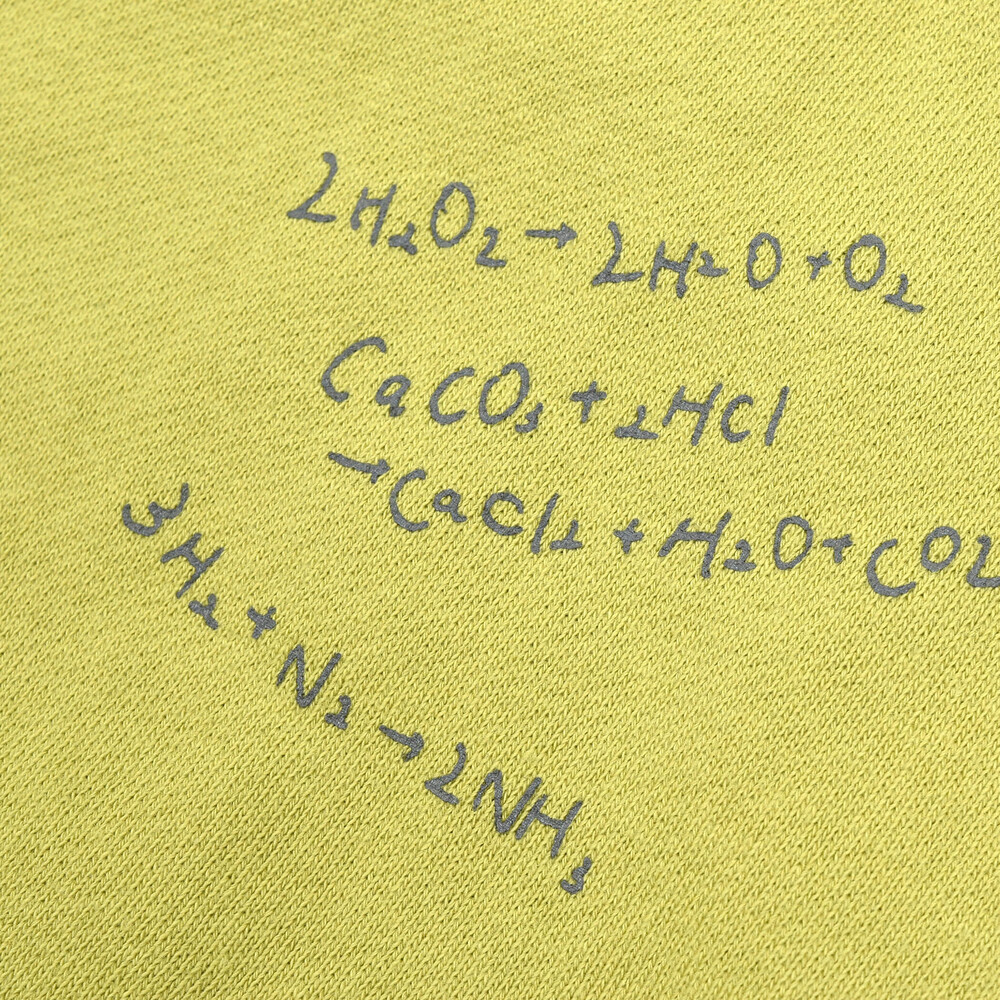 2H₂O₂→2H₂O+O₂
CaCO₃+2HCl
→CaCl₂+H₂O+CO2
3H₂+N₂→2NH₃